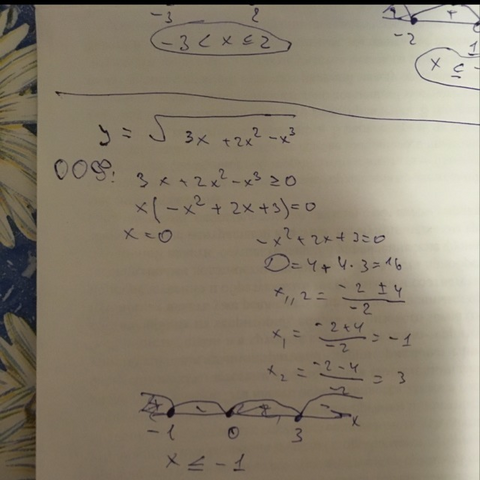 -3 2
-3 < x ≤ 2
+
-2 1
x ≤ -
y = √3x + 2x² - x³
ООФ:
3x + 2x² - x³ ≥ 0
x(-x² + 2x + 3) = 0
x = 0
-x² + 2x + 3 = 0
D = 4 + 4 · 3 = 16
x₁,₂ = (-2 ± 4)/-2
x₁ = (-2+4)/-2 = -1
x₂ = (-2-4)/-2 = 3
+ - + - x
-1 0 3
x ≤ -1